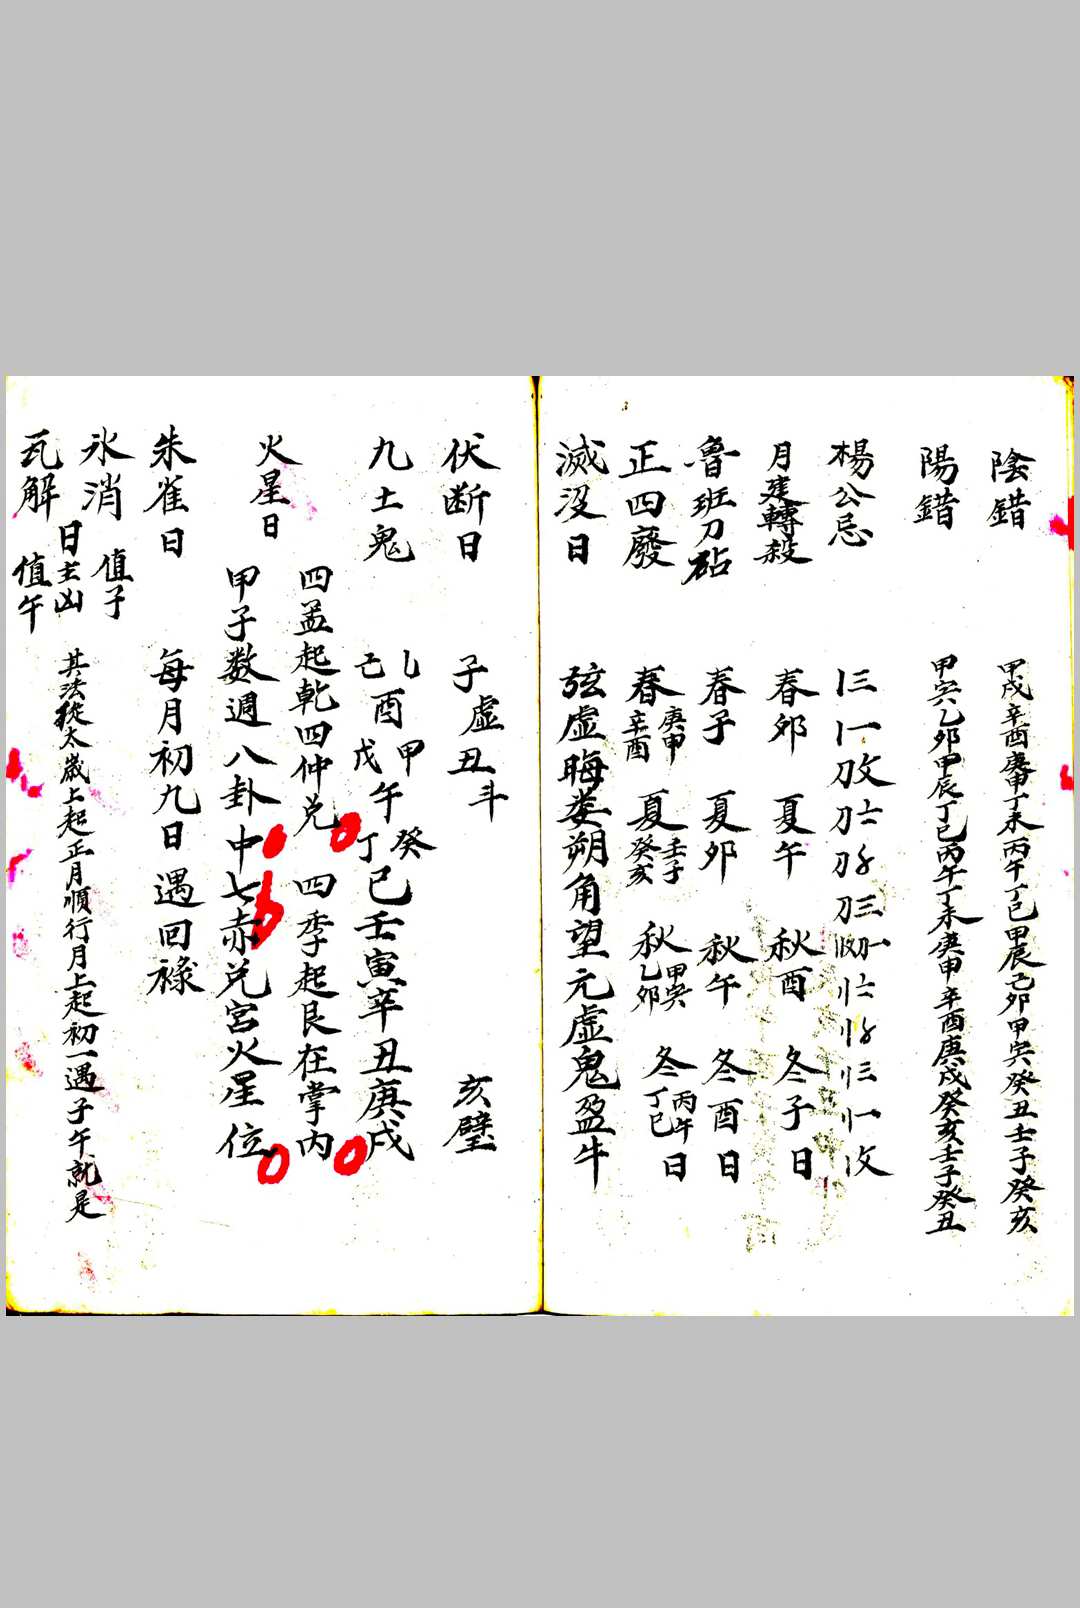 陰錯 甲戌辛酉庚申丁未丙午丁巳甲辰己卯甲寅癸丑壬子癸亥
陽錯 甲寅乙卯甲辰丁巳丙午丁未庚申辛酉庚戌癸亥壬子癸丑
楊公忌
月建轉殺 春卯 夏午 秋酉 冬子日
魯班刀砧 春子 夏卯 秋午 冬酉日
正四廢 春庚申辛酉 夏壬子癸亥 秋甲寅乙卯 冬丙午丁巳日
滅没日 弦虚晦娄朔角望元虚鬼盈牛
伏断日 子虚丑斗 亥壁
九土鬼 乙己酉甲戊午癸丁巳壬寅辛丑庚戌
火星日 四孟起乾四仲兑 四季起艮在掌内
甲子数週八卦中七赤兑宮火星位
朱雀日 每月初九日遇回祿
氷消 值子
日主凶 其法從太歲上起正月順行月上起初一遇子午就是
瓦解 值午